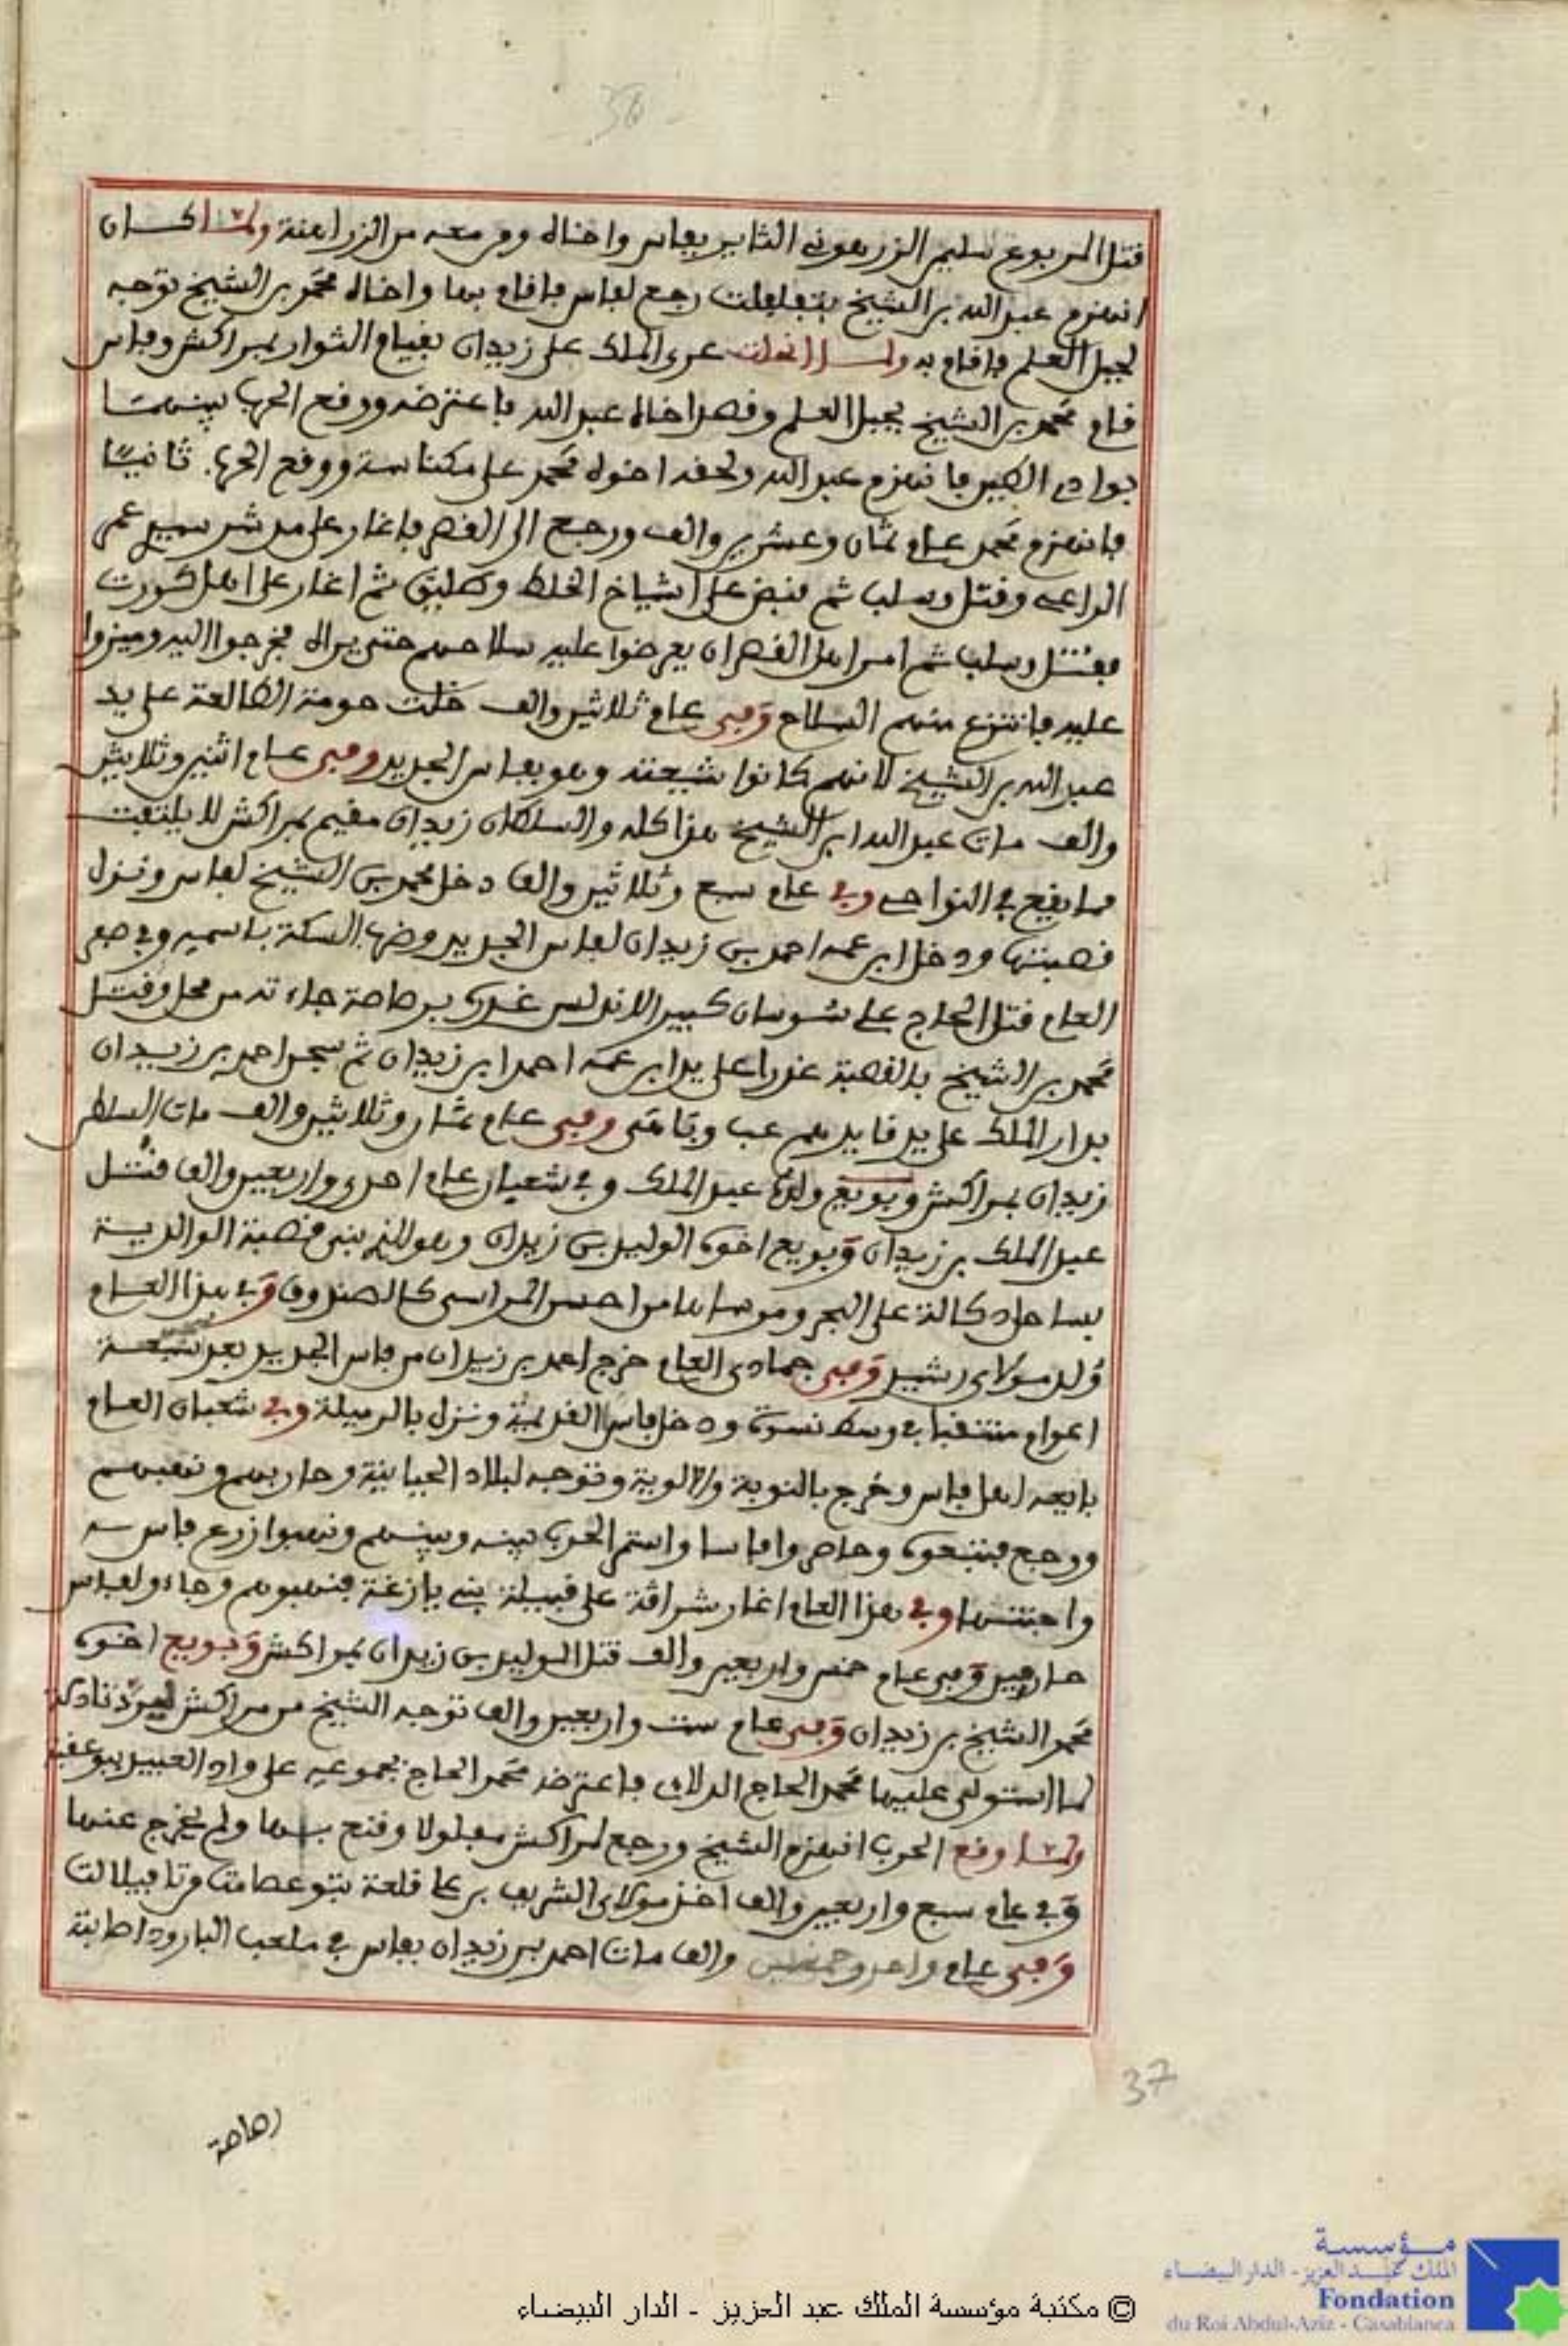 36
قتل المربوع سليمن الزرهوني الثاير بفاس واخاه ومن معه من الزراهنة ولما كان
انهزم عبد الله بن الشيخ رجع لفاس فاقام بها واخاه محمد بن الشيخ توجه
لجبل العلم فاقام به ولما انحلت عرى الملك على زيدان بقيام الثوار بمراكش وفاس
قام محمد بن الشيخ بجبل العلم وقصد اخاه عبد الله فاعترضه ووقع الحرب بينهما
بوادي الكبير فانهزم عبد الله ولحقه اخوه محمد على مكناسة ووقع الحرب ثانيا
فانهزم محمد عام ثمان وعشرين والف ورجع الى القصر فاغار على مدشر سيدي عمر
وقتل وسلب ثم قبض على اشياخ الخلط وطليق ثم اغار على اهل كورت
فقتل وسلب ثم امر اهل القصر ان يعرضوا عليه سلاحهم حتى يراه فخرجوا اليه وميزوا
عليه فانتزع منهم السلاح وفي عام ثلاثين والف خلت حومة الطالعة على يد
عبد الله بن الشيخ لانهم كانوا شيعته وهو بفاس الجديد وفي عام اثنين وثلاثين
والف مات عبد الله ابن الشيخ هذا كله والسلطان زيدان مقيم بمراكش لا يلتفت
لما يقع في النواحي وفي عام سبع وثلاثين والف دخل محمد بن الشيخ لفاس ونزل
قصبتها ودخل ابن عمه احمد بن زيدان لفاس الجديد وضرب السكة باسمه وفي صفر
العام قتل الحاج علي سوسان كبير الاندلس غدرا برصاصة جاءته من محل وقتل
محمد بن الشيخ بالقصبة غدرا على يد ابن عمه احمد ابن زيدان ثم سجن احمد بن زيدان
بدار الملك على يد قايدهم عب وبامي وفي عام ثمان وثلاثين والف مات السلطن
زيدان بمراكش وبويع ولده عبد الملك وفي شعبان عام احدى واربعين والف قتل
عبد الملك بن زيدان وبويع اخوه الوليد بن زيدان وهو الذي بنى قصبة الوالدية
بساحل دكالة على البحر ومرساها من احسن المراسي كالصندوق وفي هذا العام
ولد مولاي رشيد وفي جمادى العام خرج احمد بن زيدان من فاس الجديد بعد تسعة
اعوام منتقبا في وسط نسوة ودخل فاس القديمة ونزل بالرميلة وفي شعبان العام
بايعه اهل فاس وخرج بالنوبة والالوية وتوجه لبلاد الحياينة وحاربهم ونهبهم
ورجع فتبعوه وحاصروا فاسا واستمر الحرب بينه وبينهم ونهبوا زرع فاس
وفي هذا العام اغار شراقة على قبيلة بني يازغة فنهبوهم وجاءو لفاس
وفي عام خمس واربعين والف قتل الوليد بن زيدان بمراكش وبويع اخوه
محمد الشيخ بن زيدان وفي عام ست واربعين والف توجه الشيخ من مراكش لتادلة
لما استولى عليها محمد الحاج الدلاي فاعترضه محمد الحاج بجموعه على واد العبيد ببوعقبة
ولما وقع الحرب انهزم الشيخ ورجع لمراكش مفلولا وقنع بها ولم يخرج عنها
وفي عام سبع واربعين والف اخذ مولاي الشريف بن علي قلعة تبوعصامت من تافيلالت
وفي عام واحد وخمسين والف مات احمد بن زيدان بفاس في ملعب البارود اصابته
37
رصاصة
مؤسسة
الملك عبد العزيز - الدار البيضاء
Fondation
du Roi Abdul-Aziz - Casablanca
© مكتبة مؤسسة الملك عبد العزيز - الدار البيضاء